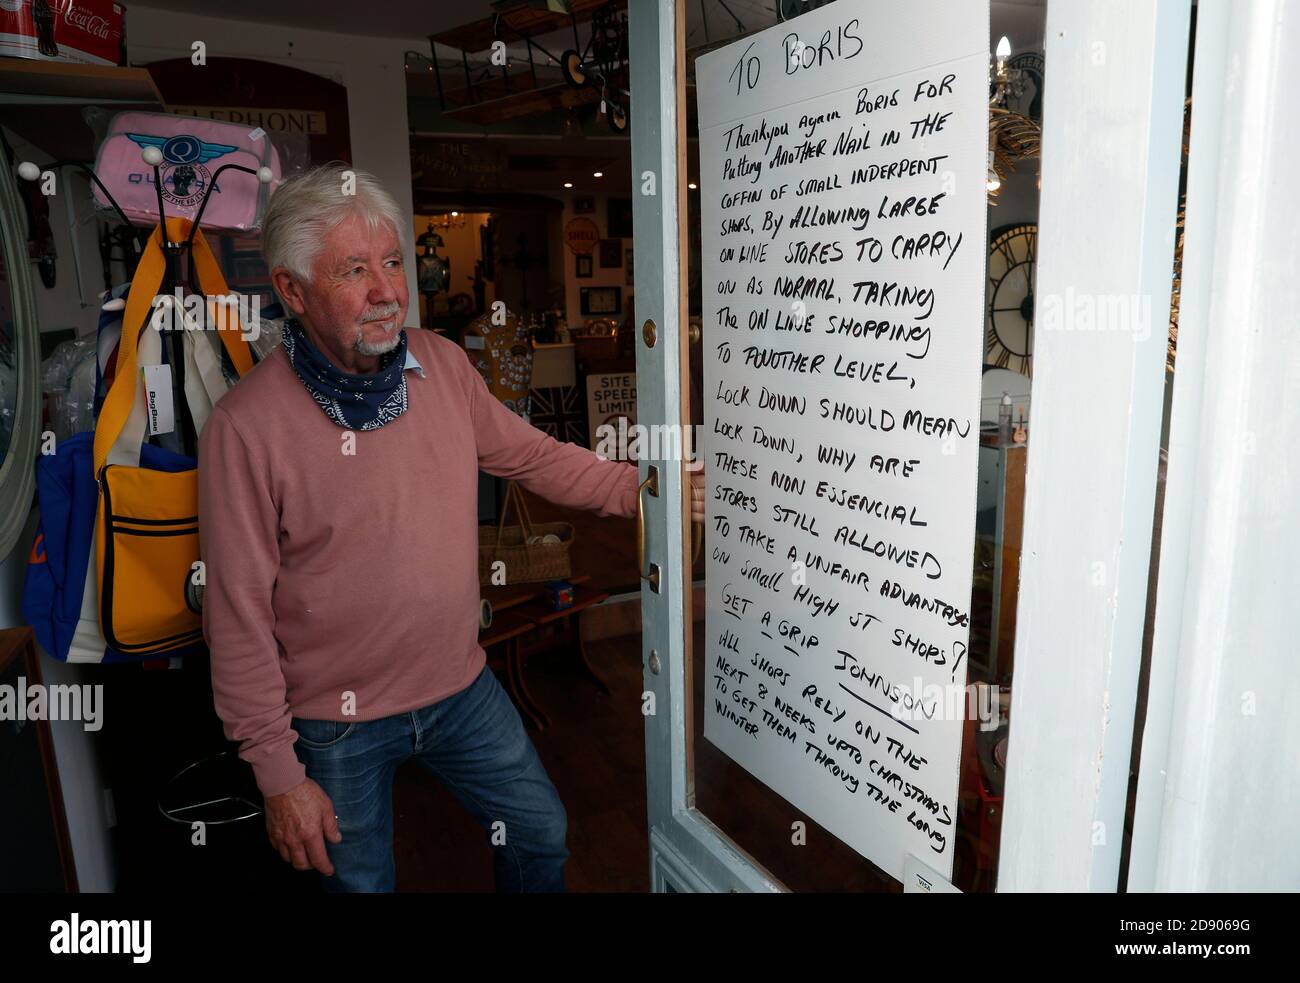 Coca-Cola
TELEPHONE
THE
SHELL
QUADROPHENIA
BagBase
SITE
SPEED
LIMIT
TO BORIS
Thankyou Again BORIS FOR
PUTTING ANOTHER NAIL IN THE
COFFIN OF SMALL INDERPENT
SHOPS, BY ALLOWING LARGE
ON LINE STORES TO CARRY
ON AS NORMAL, TAKING
The ON LINE SHOPPING
TO ANOUTHER LEVEL,
LOCK DOWN SHOULD MEAN
LOCK DOWN, WHY ARE
THESE NON ESSENCIAL
STORES STILL ALLOWED
TO TAKE A UNFAIR ADVANTAGE
ON SMALL HIGH ST SHOPS?
GET A GRIP JOHNSON
ALL SHOPS RELY ON THE
NEXT 8 WEEKS UPTO CHRISTMAS
TO GET THEM THROUG THE LONG
WINTER
VISA
alamy
a
Image ID: 2D9069G
www.alamy.com